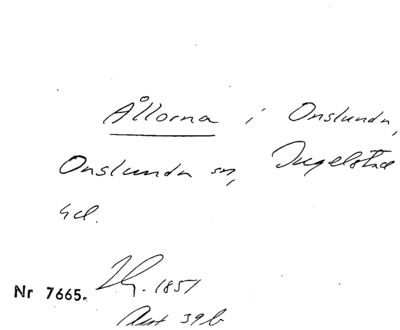 Ållorna i Onslunda,
Onslunda sn, Ingelstad
hd.
Nr 7665. 1851
Avst 39b